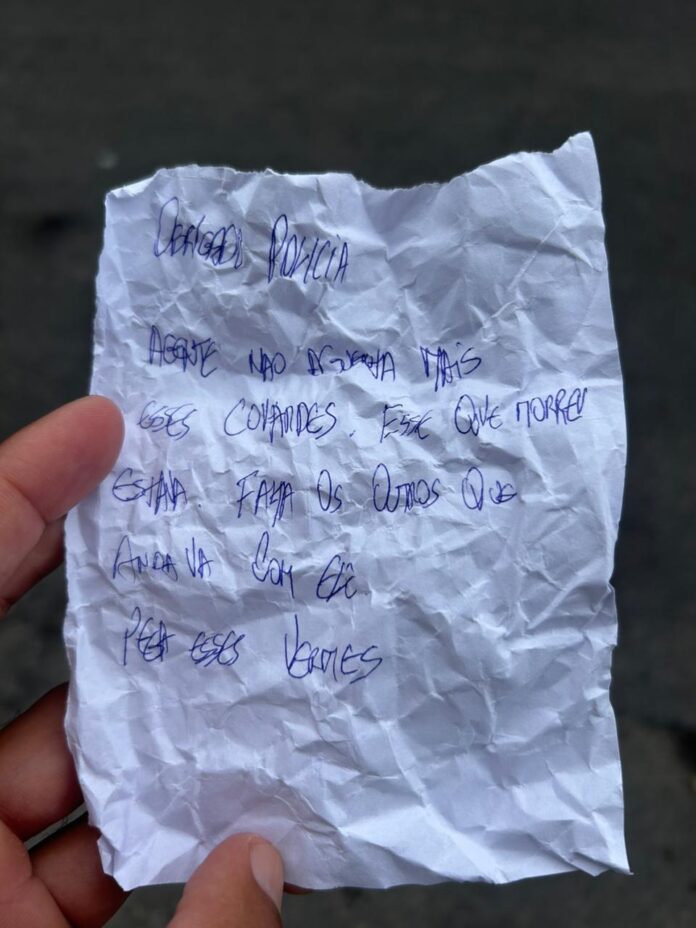 OBRIGADO POLICIA
AGENTE NAO AGUENTA MAIS
ESSES COVARDES. ESSE QUE MORREU
ESTAVA. FALTA OS OUTROS QUE
ANDAVA COM ELE
PEGA ESSES VERMES